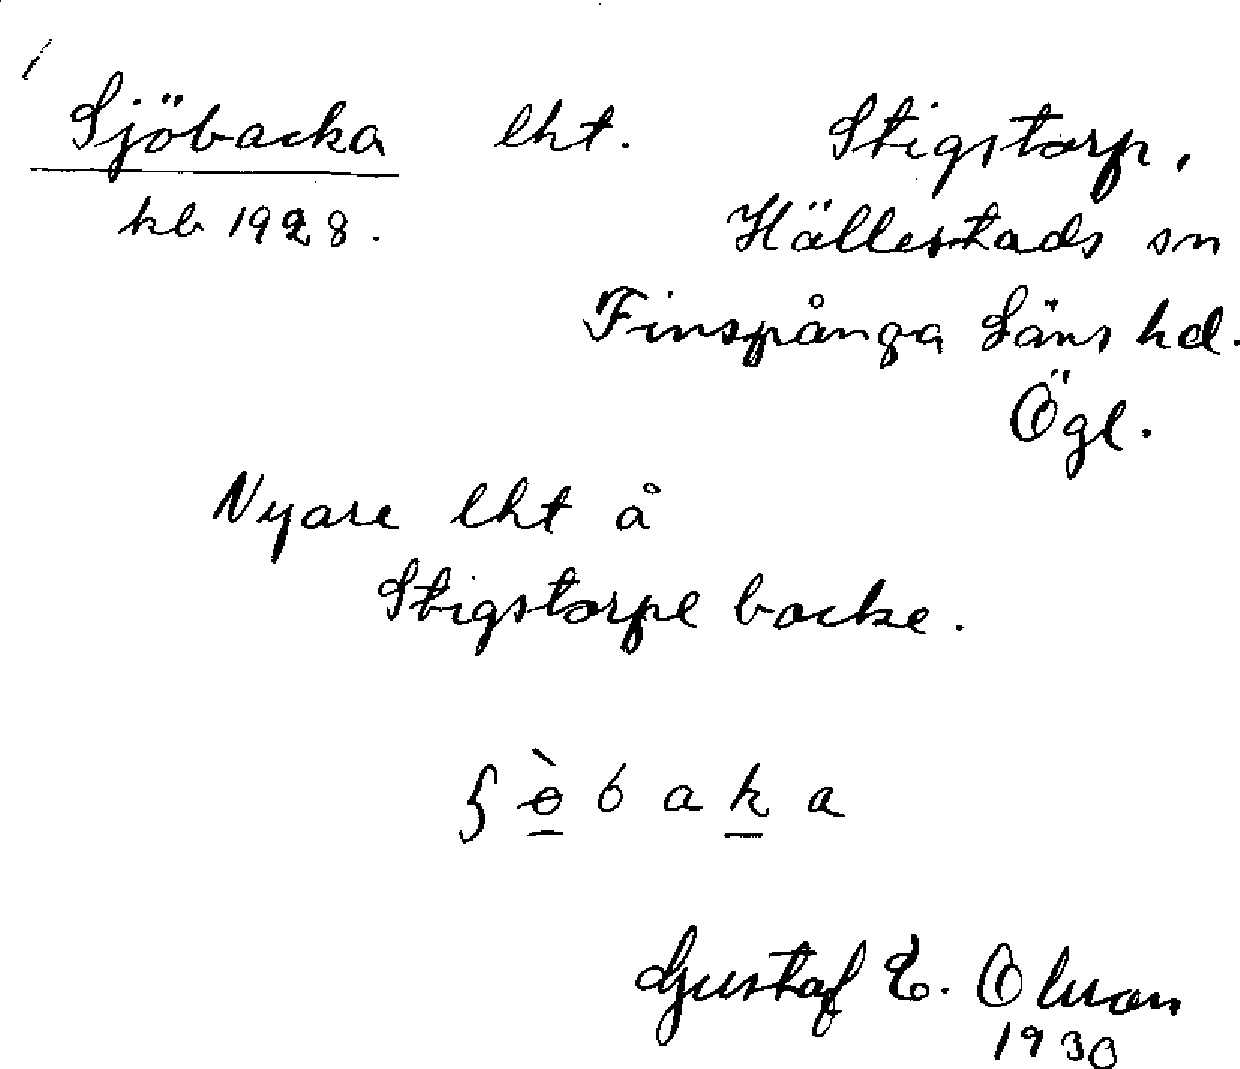 Sjöbacka lht. Stigstorp,
kb 1928. Hällestads sn
Finspånga Läns hd.
Ögl.
Nyare lht å
Stigstorpe backe.
ʃɵ̀baka
Gustaf E. Olsson
1930